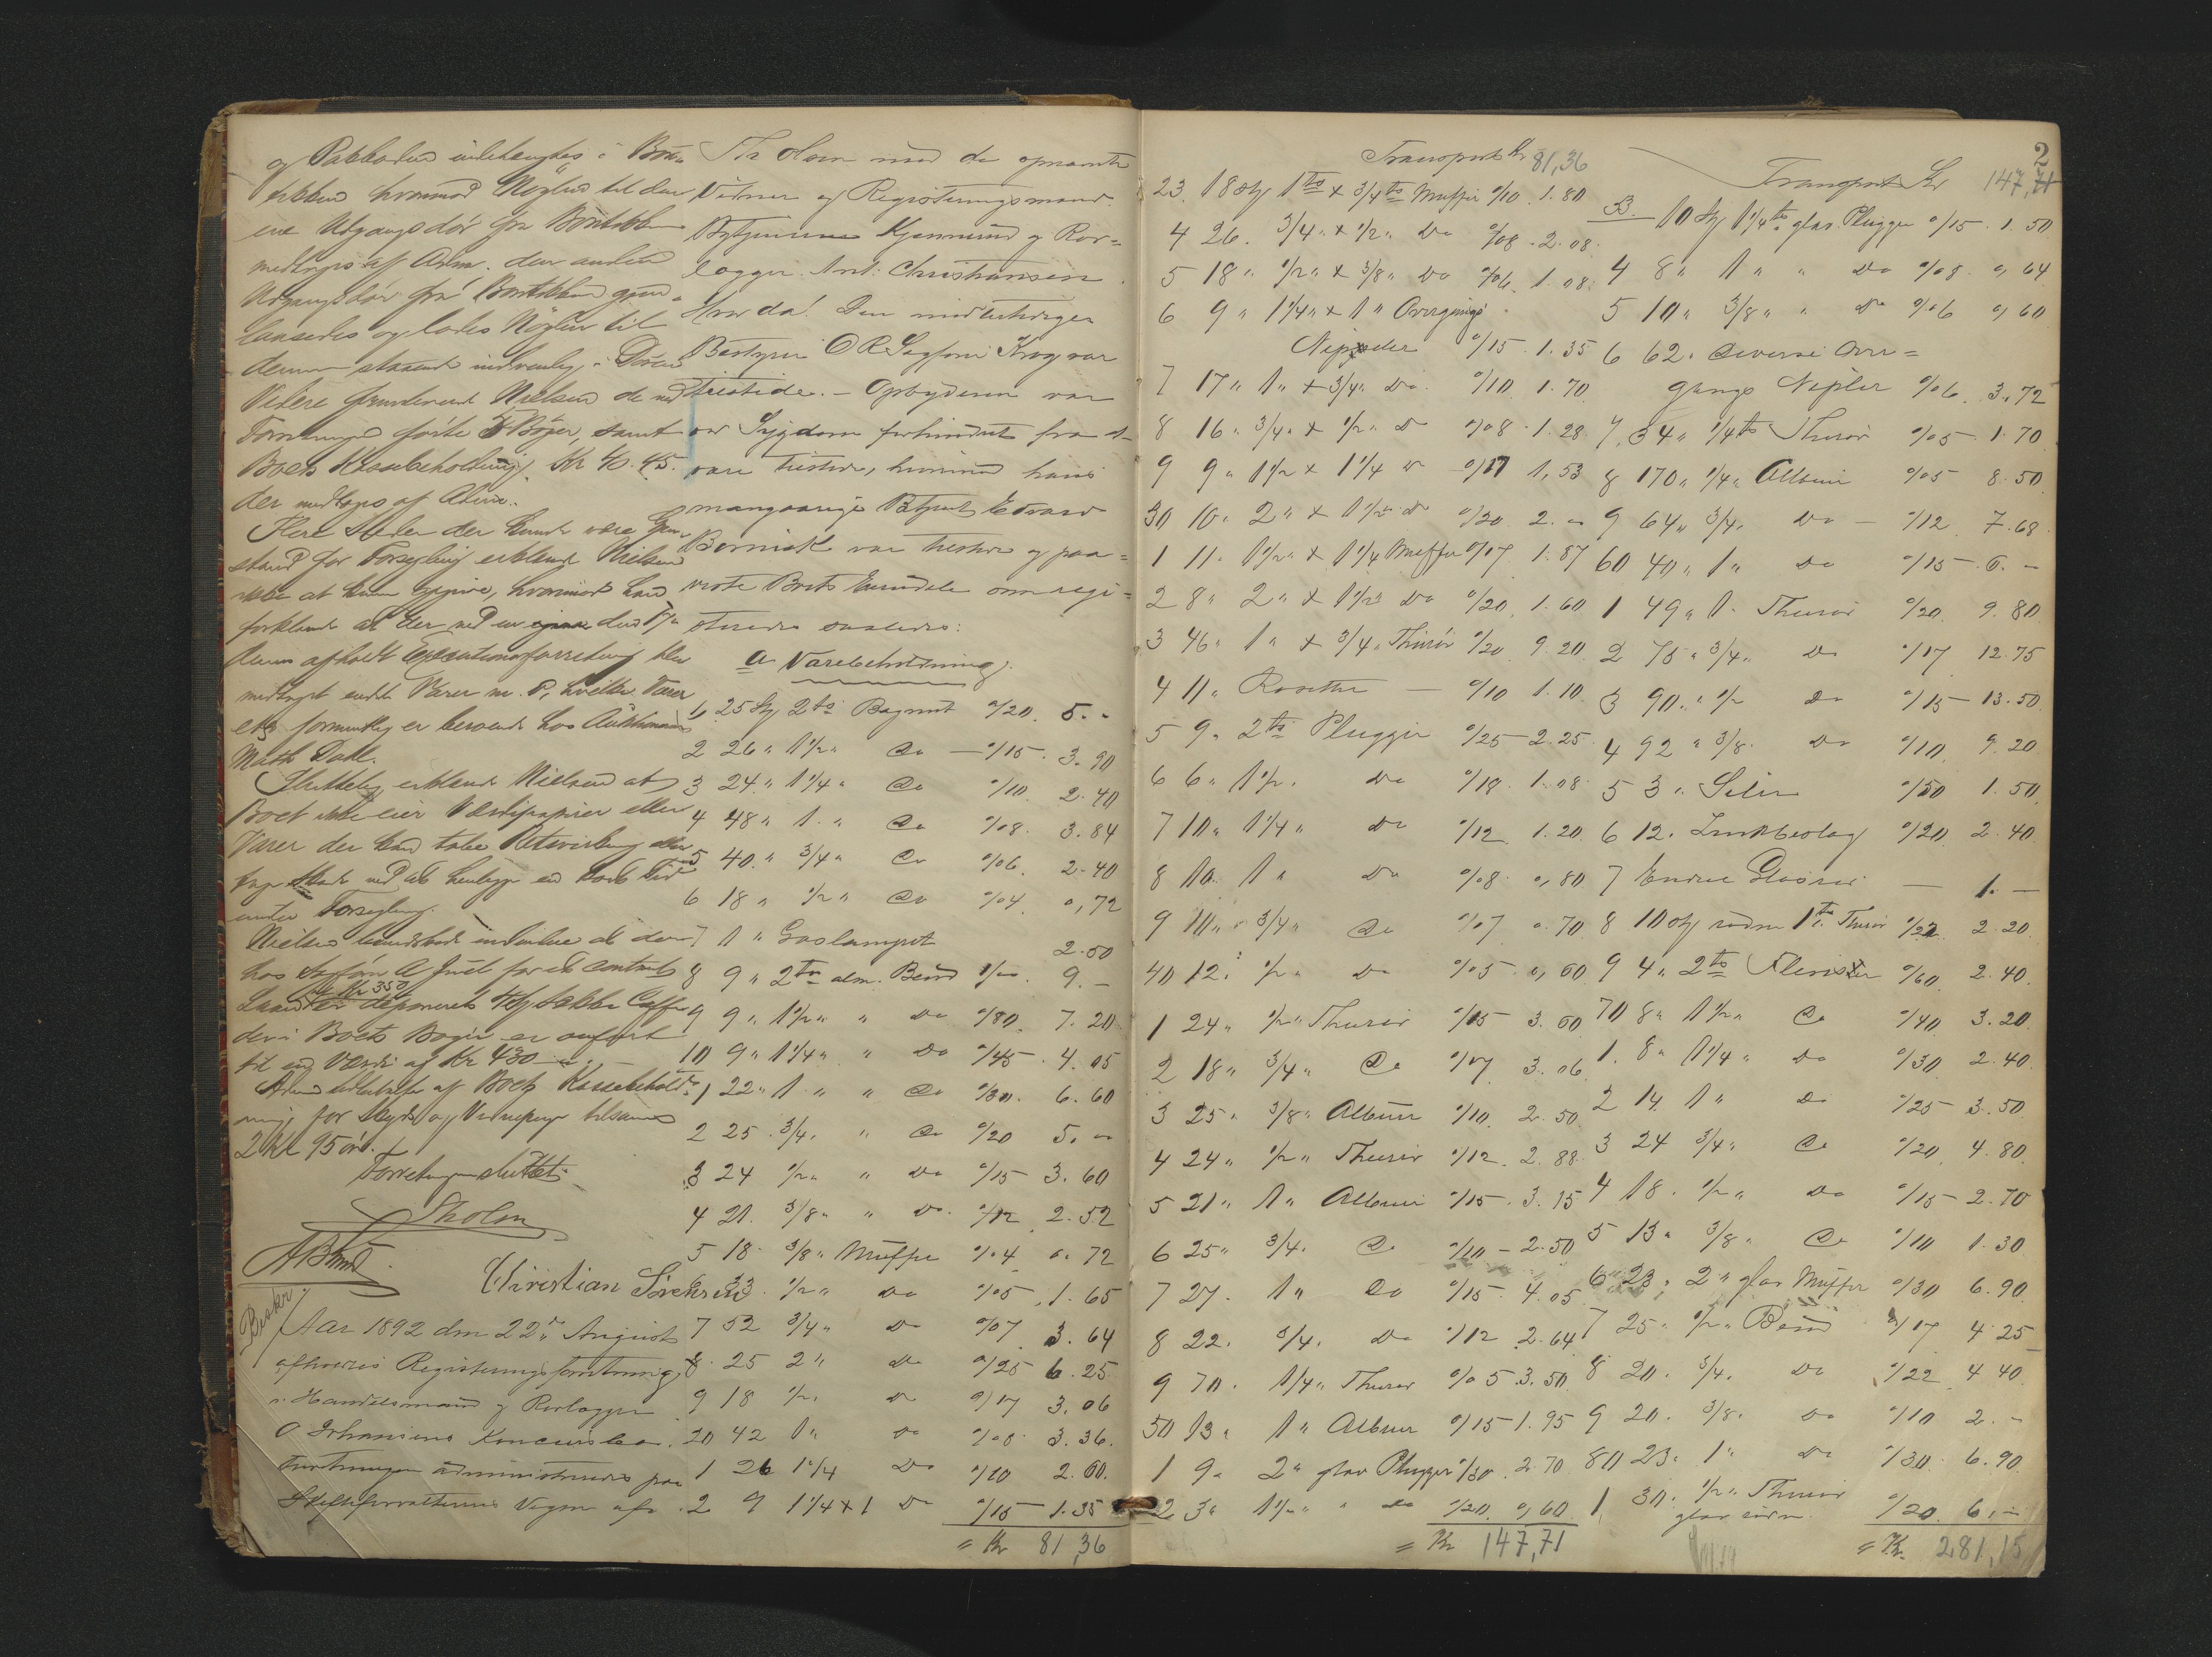 og Pakboden indehengtes i Bou-
tikken hvorimod Nøglen til den
ene Udgangsdør fra Boutikken
medtoges af Adm. den anden
Udgangsdør fra Boutikken
og lodes Nøglen til
denne staaende indvendig i Døren
Videre Nielsen de ved
Forretningen førte 5 Bøger, samt
Boets Kassebeholdning Kr 40.45.
der medtoges af Adm.
Flere Steder der kunde være Gjen-
stand for Forsegling erklærede Nielsen
ikke at kunne opgive, hvorimod han
forklarede at der ved en den 17de
dennes afholdt Executionsforretning blev
medtaget endel Varer hvilke Varer
formentlig er beroende hos
Math. Dahl.
Sluttelig erklærede Nielsen at
Boet ikke eier Værdipapirer eller
Varer der kan tabe eller
tage Skade ved at henlægge en kort Tid
under Forsegling.
Nielsen at der
hos Sagfører A Juel for et contant
Laan stor Kr 350 er deponeret Sække Caffe
der i Boets Bøger er anført
til en Værdi af Kr 430
af Boets Kassebehold-
ning for Skyds og tilsammen
2 Kr 95 øre.
Forretningen sluttet.
Skolm
Christian Sørensen
Beskr.
Aar 1892 den 22de August
afholdtes Registreringsforretning
i Handelsmand og Rørlægger
O Johansens Koncursbo.
Forretningen administreredes paa
Skifteforvalterens Vegne af
Th Olsen med de opnævnte
Vidner og Registreringsmænd
Kjennerud og Rør-
lægger Ant: Christiansen
Hvorda! Den midlertidige
Bestyrer O R Sagfører Krog var
tilstede. – Opbyderen var
ved Sygdom forhindret fra at
være tilstede, hvorimod hans
mangeaarige Betjent Edvard
Bernick var tilstede og paa=
viste Boets Eiendele som regi=
streredes saaledes:
a Varebeholdning.
1 25 Stk 2ts Bøgmut a/20. 5.-
2 26 " 1 1/2 " do — a/15. 3.90
3 24 " 1 1/4 " do a/10. 2.40
4 48 " 1 " do a/08. 3.84
5 40 " 3/4 " do a/06. 2.40
6 18 " 1/2 " do a/04. 0,72
7 1 " Gaslampet 2.50
8 9 " 2ts alm. Bend 1/00. 9.-
9 9 " 1 1/2 " " do a/80. 7.20
10 9 " 1 1/4 " " do a/45. 4.05
1 22 " 1 " " do a/30. 6.60
2 25 3/4 " " do a/20 5.-
3 24 1/2 " " do a/15 3.60
4 21. 3/8 " " do. a/12 2.52
5 18 3/8 " Muffe a/04 0.72
6 33. 1/2 " do a/05. 1.65
7 52 3/4 " do a/07 3.64
8 25 2 " do a/25 6.25
9 18 1/2 do a/17 3.06
20 42 1 " do a/08 3.36.
1 26 1 1/4 do a/10 2.60.
2 9 1 1/4 x 1 do a/15 – 1.35
= Kr 81,36
Transport Kr 81,36
23. 18 Stk 1ts x 3/4ts Muffer a/10. 1.80
4 26. 3/4 " x 1/2 " Do a/08. 2.08.
5 18 " 1/2 " x 3/8 " Do a/06. 1.08
6 9 " 1 1/4 " x 1 " Overgangs
Nipler a/15. 1.35
7 17 " 1 " x 3/4 " Do. a/10. 1.70
8 16. 3/4 " x 1/2 " Do a/08. 1.28
9 9 " 1 1/2 x 1 1/4 do a/17 1,53
30 10. 2 " x 1 1/2 " do a/20. 2.-
1 11. 1 1/2 " x 1 1/4 Muffer a/17 1.87
2 8 " 2 " x 1 1/2 " Do a/20. 1.60
3 46 " 1 " x 3/4 " Thurør a/20 9.20
4 11 " Rosetter — a/10 1.10
5 9 " 2ts Plugger a/25 – 2.25
6 6 " 1 1/2 " Do a/18. 1.08
7 10 " 1 1/4 " Do a/12 1.20
8 10. 1 " Do a/08. 0,80
9 10 " 3/4 " Do a/07 0.70
40 12. 1/2 " Do a/05 0,60
1 24 " 1/2 " Thurør a/15 3.60
2 18 " 3/4 " Do a/17 3.06
3 25 " 3/8 " Albuer a/10. 2.50
4 24 " 1/2 " Thurør a/12. 2.88
5 21 " 1 " Albuer a/15. 3.15
6 25 " 3/4. Do a/10 – 2.50
7 27. 1 " Do a/15. 4.05
8 22. 3/4. Do a/12 2.64
9 70. 1/4 " Thurør a/05 3.50
50 13. 1 " Albuer a/15 1.95
1 9. 2 " glav Plugger a/30 2.70
2 3 " 1 1/2 " " do a/20. 0,60
= Kr 147,71
2
Transport Kr 147,71
53. 10 Stk 1 1/4ts glav. Plugger a/15. 1.50
4 8 " 1 " " Do a/08. 0,64
5 10 " 3/8 " " Do a/06 0,60
6 62. diverse Over=
gangs Nipler a/06. 3.72
7. 34 " 1/4ts Thurør a/05 1.70
8 170 " 1/4 " Albuer a/05 8.50
9 64 " 3/4. Do — a/12. 7.68
60 40 " 1 " Do a/15 – 6.-
1 49 " 1. Thurør a/20. 9.80
2 75 " 3/4 " Do a/17 12.75
3 90. " 1/2 Do a/15 – 13.50.
4 92 " 3/8. Do a/10. 9.20
5 3 " a/50 1.50.
6 12. a/20 2.40
7 Endel — 1.-
8 10 Stk 1ts Thurør a/22 2.20
9 4 " 2ts a/60. 2.40.
70 8 " 1 1/2 " Do a/40 3.20
1. 8 " 1 1/4 " Do a/30 2.40
2 14 1 " Do a/25 – 3.50
3 24 3/4 " Do a/20. 4.80
4 18. 1/2 " Do a/15 – 2.70
5 13 " 3/8 " Do a/10 1.30
6 23. 2 " glav Muffer a/30 6.90
7 25 " 1/2 " Bend a/17 4.25
8 20. 3/4. Do a/22 4.40
9 20. 3/8. Do a/10 2.-
80 23. 1 " Do a/30. 6.90
1. 30. 1/2 " Thurør
glav a/20. 6.-
= Kr. 281,15